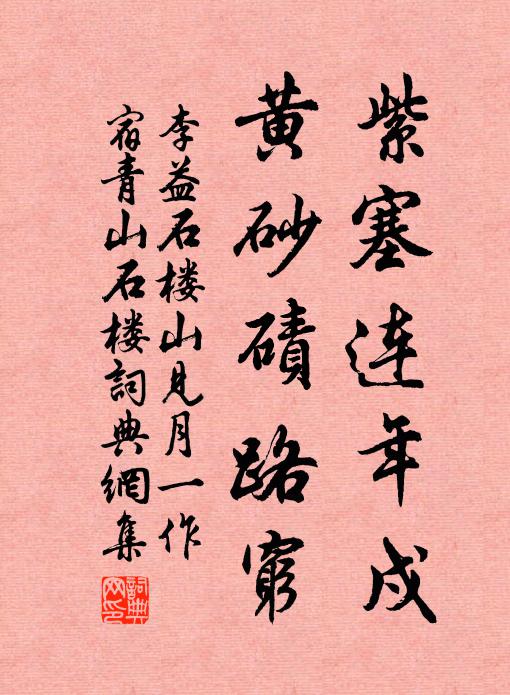 紫塞连年戍
黄砂磧路穷
李益石楼山见月一作
宿青山石楼詞典網集
詞典網印